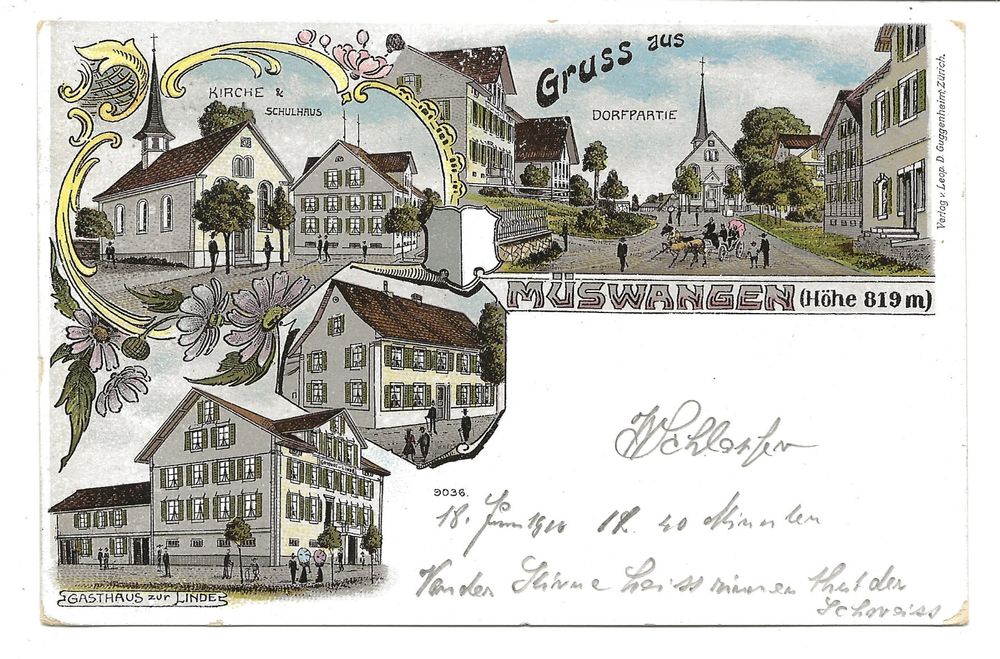 KIRCHE &
SCHULHAUS
Gruss aus
DORFPARTIE
Verlag v. Leop. D. Guggenheim, Zürich.
MÜSWANGEN (Höhe 819 m)
9036.
18. 12. 40 Minuten
Von der Stirne heiss rinnen thut der
Schweiss
GASTHAUS zur LINDE